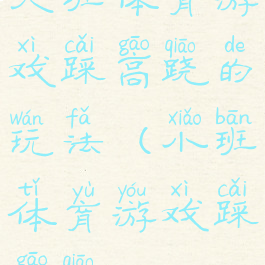 班体育游
xì cǎi gāo qiāo de
戏踩高跷的
wán fǎ xiǎo bān
玩法（小班
tǐ yù yóu xì cǎi
体育游戏踩
gāo qiāo